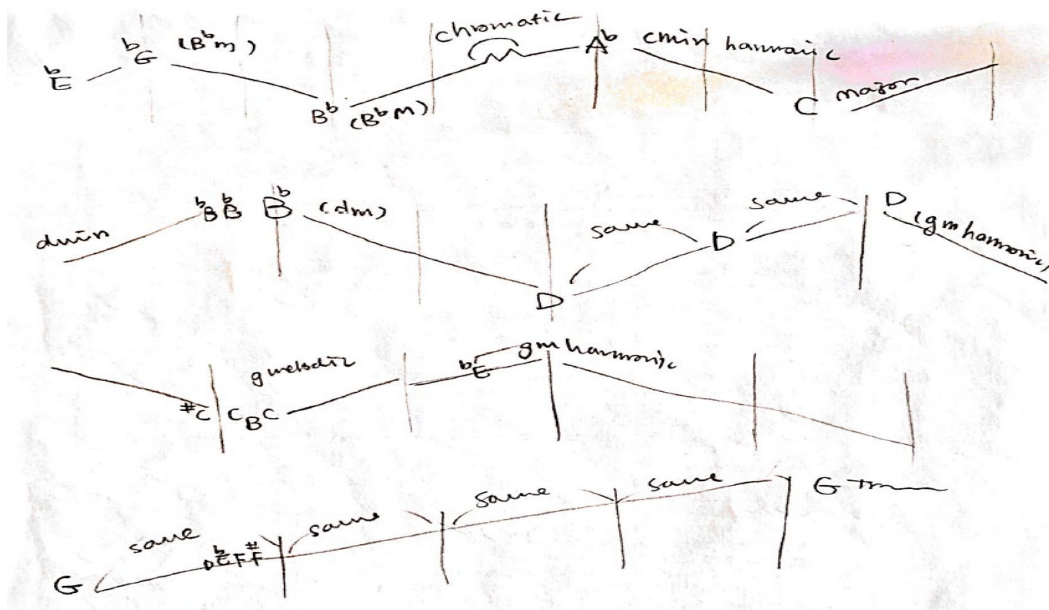 ᵇE ᵇG (Bᵇm) Bᵇ (BᵇM) chromatic Aᵇ cmin harmonic C major
dmin ᵇB ᵇB Bᵇ (dm) D same D same D (gm harmonic)
#C C B C g melodic ᵇE gm harmonic
G same D ᵇE F #F same same same G